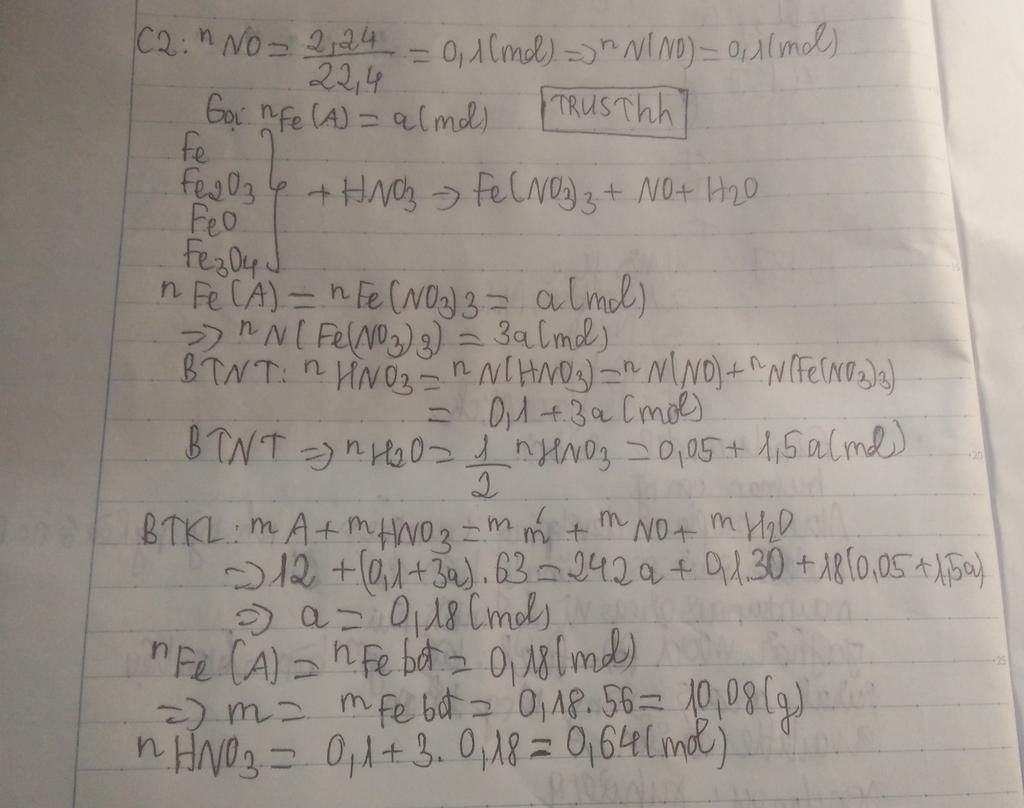 C2: nNO = 2,24/22,4 = 0,1(mol) => nN(NO) = 0,1(mol)
Gọi nFe(A) = a(mol) TRUSThh
Fe
Fe2O3
FeO
Fe3O4
+ HNO3 → Fe(NO3)3 + NO + H2O
nFe(A) = nFe(NO3)3 = a(mol)
=> nN(Fe(NO3)3) = 3a(mol)
BTNT: nHNO3 = nN(HNO3) = nN(NO) + nN(Fe(NO3)3)
= 0,1 + 3a (mol)
BTNT => nH2O = 1/2 nHNO3 = 0,05 + 1,5a(mol)
BTKL: mA + mHNO3 = m m' + mNO + mH2O
=> 12 + (0,1+3a).63 = 242a + 0,1.30 + 18(0,05+1,5a)
=> a = 0,18(mol)
nFe(A) = nFe bột = 0,18(mol)
=> m = mFe bột = 0,18.56 = 10,08(g)
nHNO3 = 0,1 + 3. 0,18 = 0,64(mol)